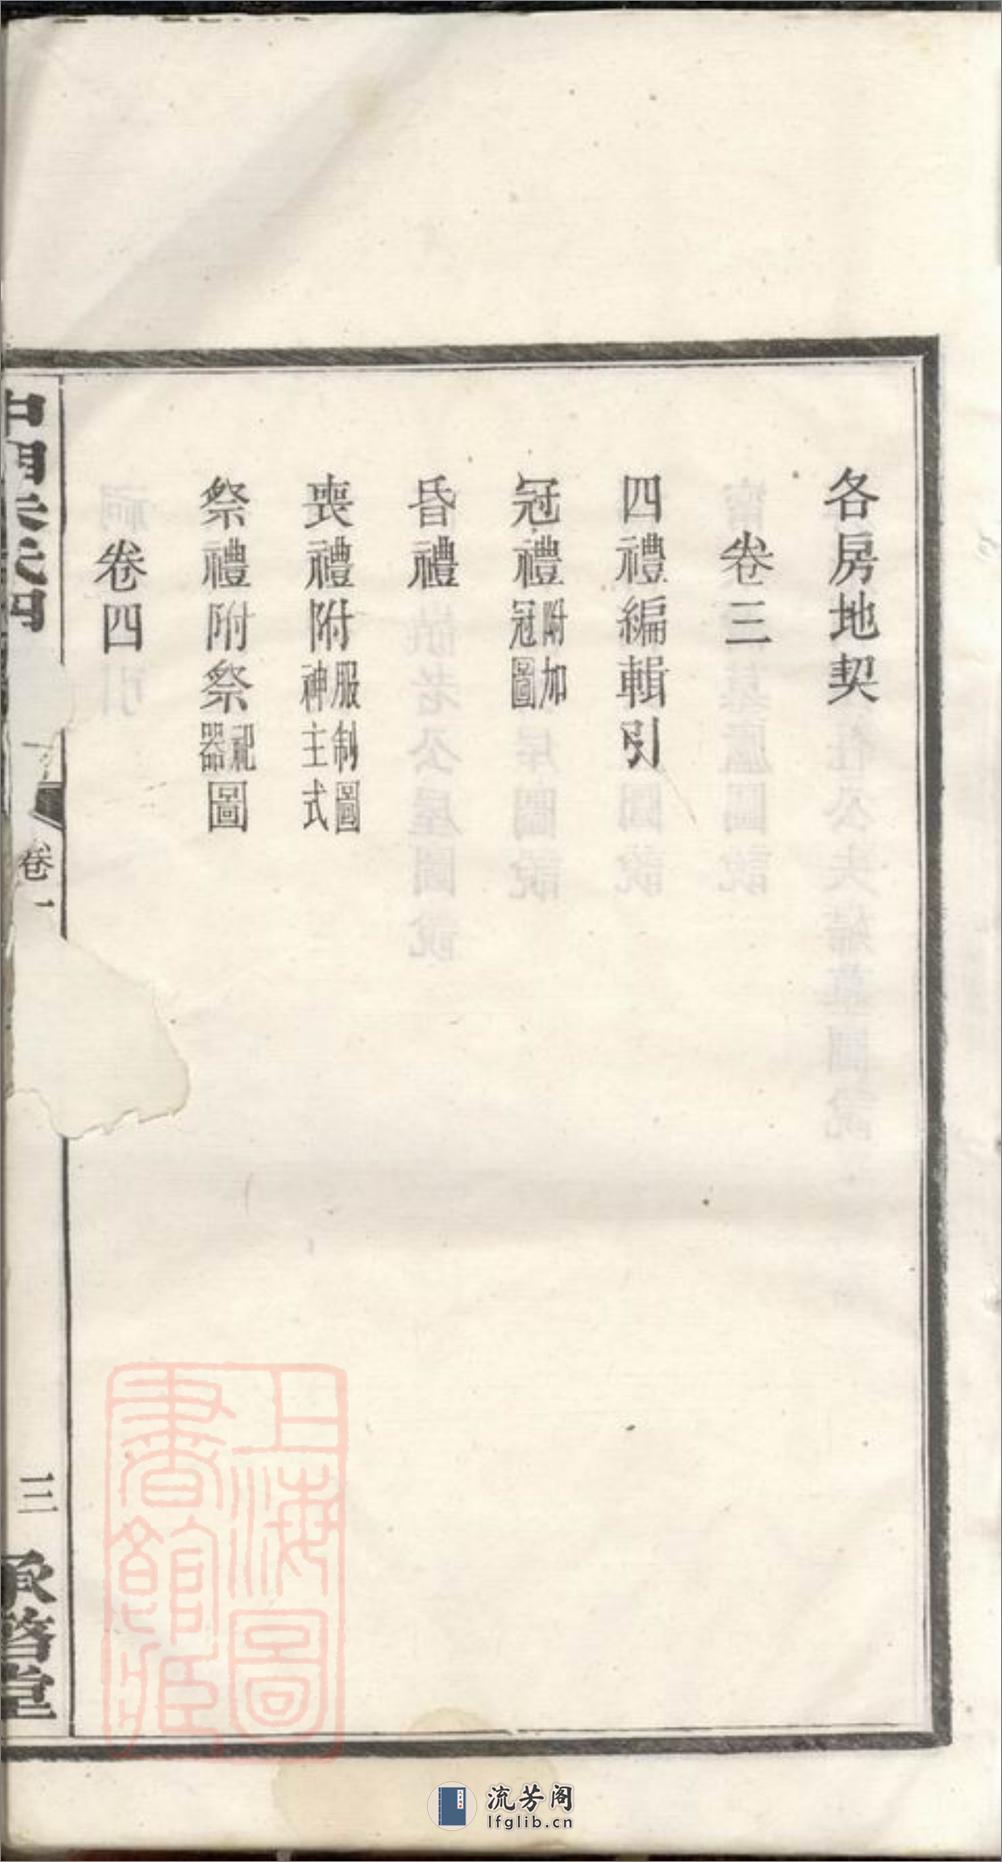 各房地契
卷三
四禮編輯引
冠禮附加冠圖
昏禮
喪禮附服制圖神主式
祭禮附祭祀器圖
卷四
卷一
三
承啓堂
上海圖書館藏
流芳阁
lfglib.cn